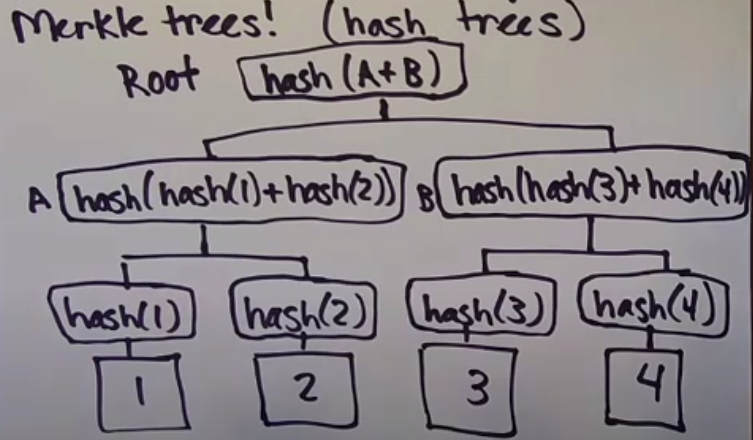 Merkle trees! (hash trees)
Root hash (A+B)
A hash(hash(1)+hash(2)) B hash(hash(3)+hash(4))
hash(1) hash(2) hash(3) hash(4)
1 2 3 4